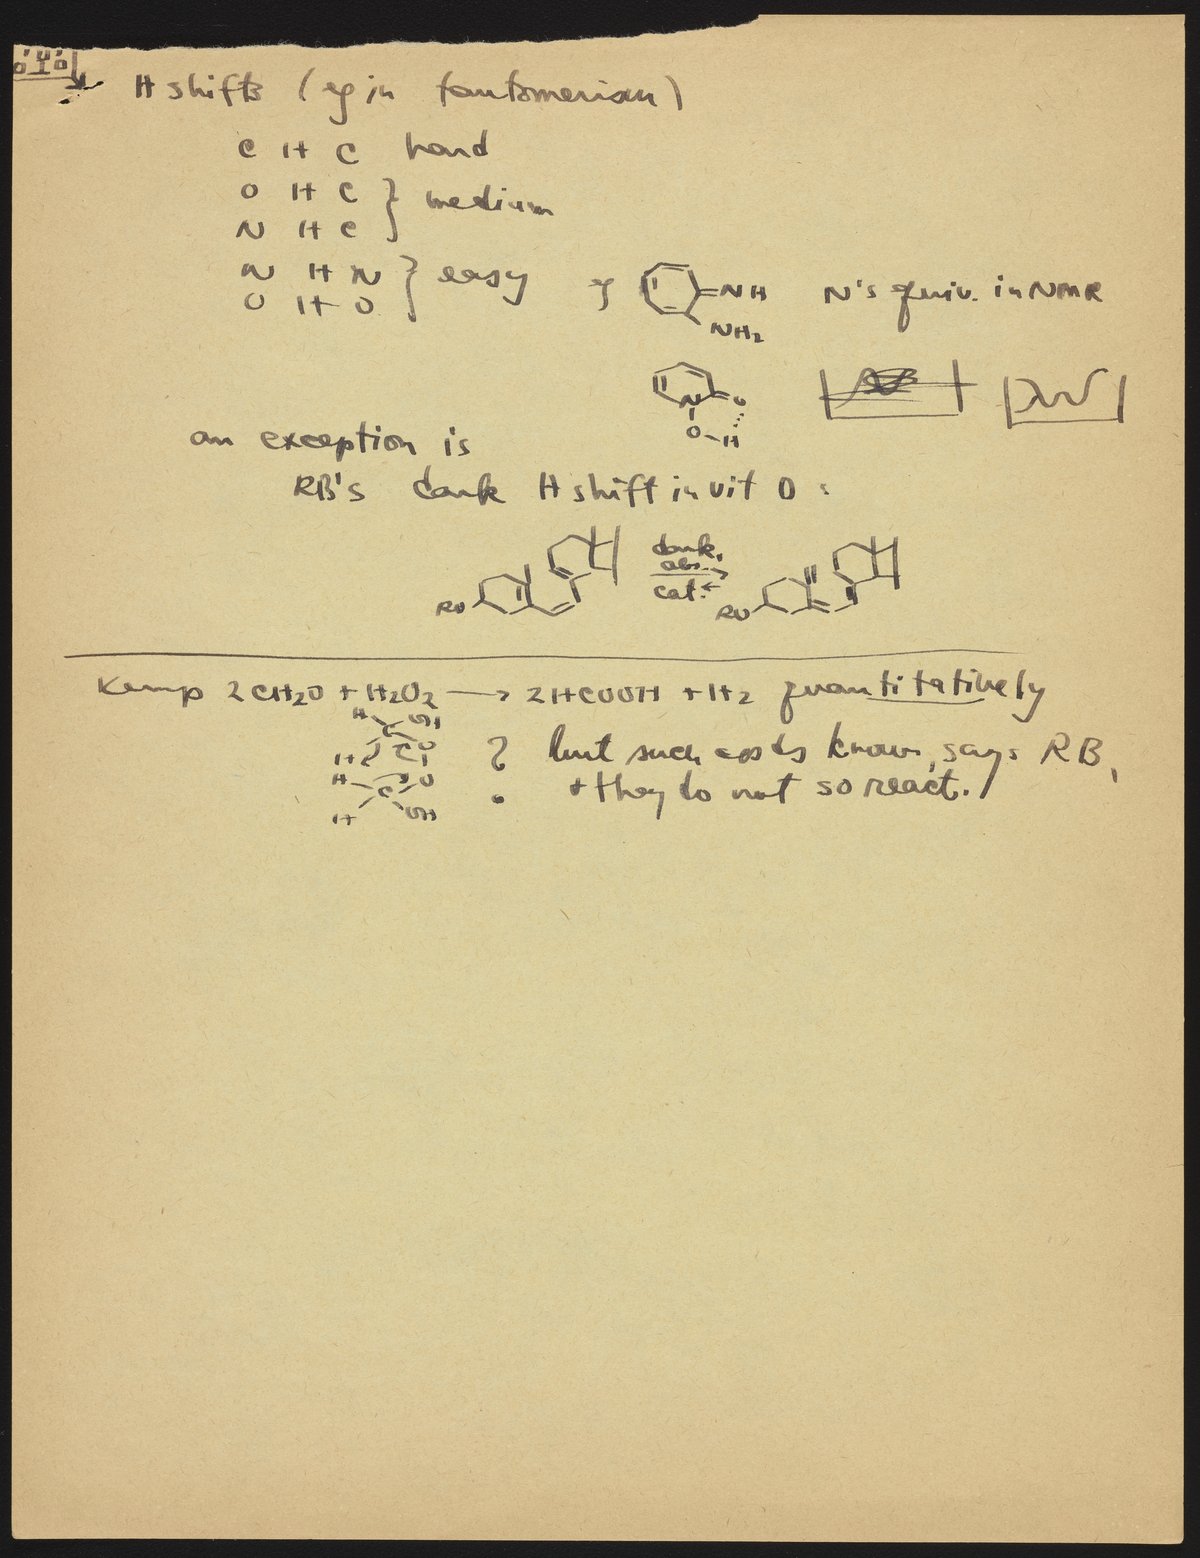 H shifts (eg in tautomerism)
C H C hard
O H C } medium
N H C
N H N } easy
O H O
eg =NH N's equiv. in NMR
NH2
N O
O-H
an exception is
RB's dark H shift in vit D:
dark,
abs.
cat.
RO
RO
Kemp 2CH2O + H2O2 → 2HCOOH + H2 quantitatively
H OH
C
H O
H C O
H OH
? but such cpds known, says RB,
+ they do not so react.